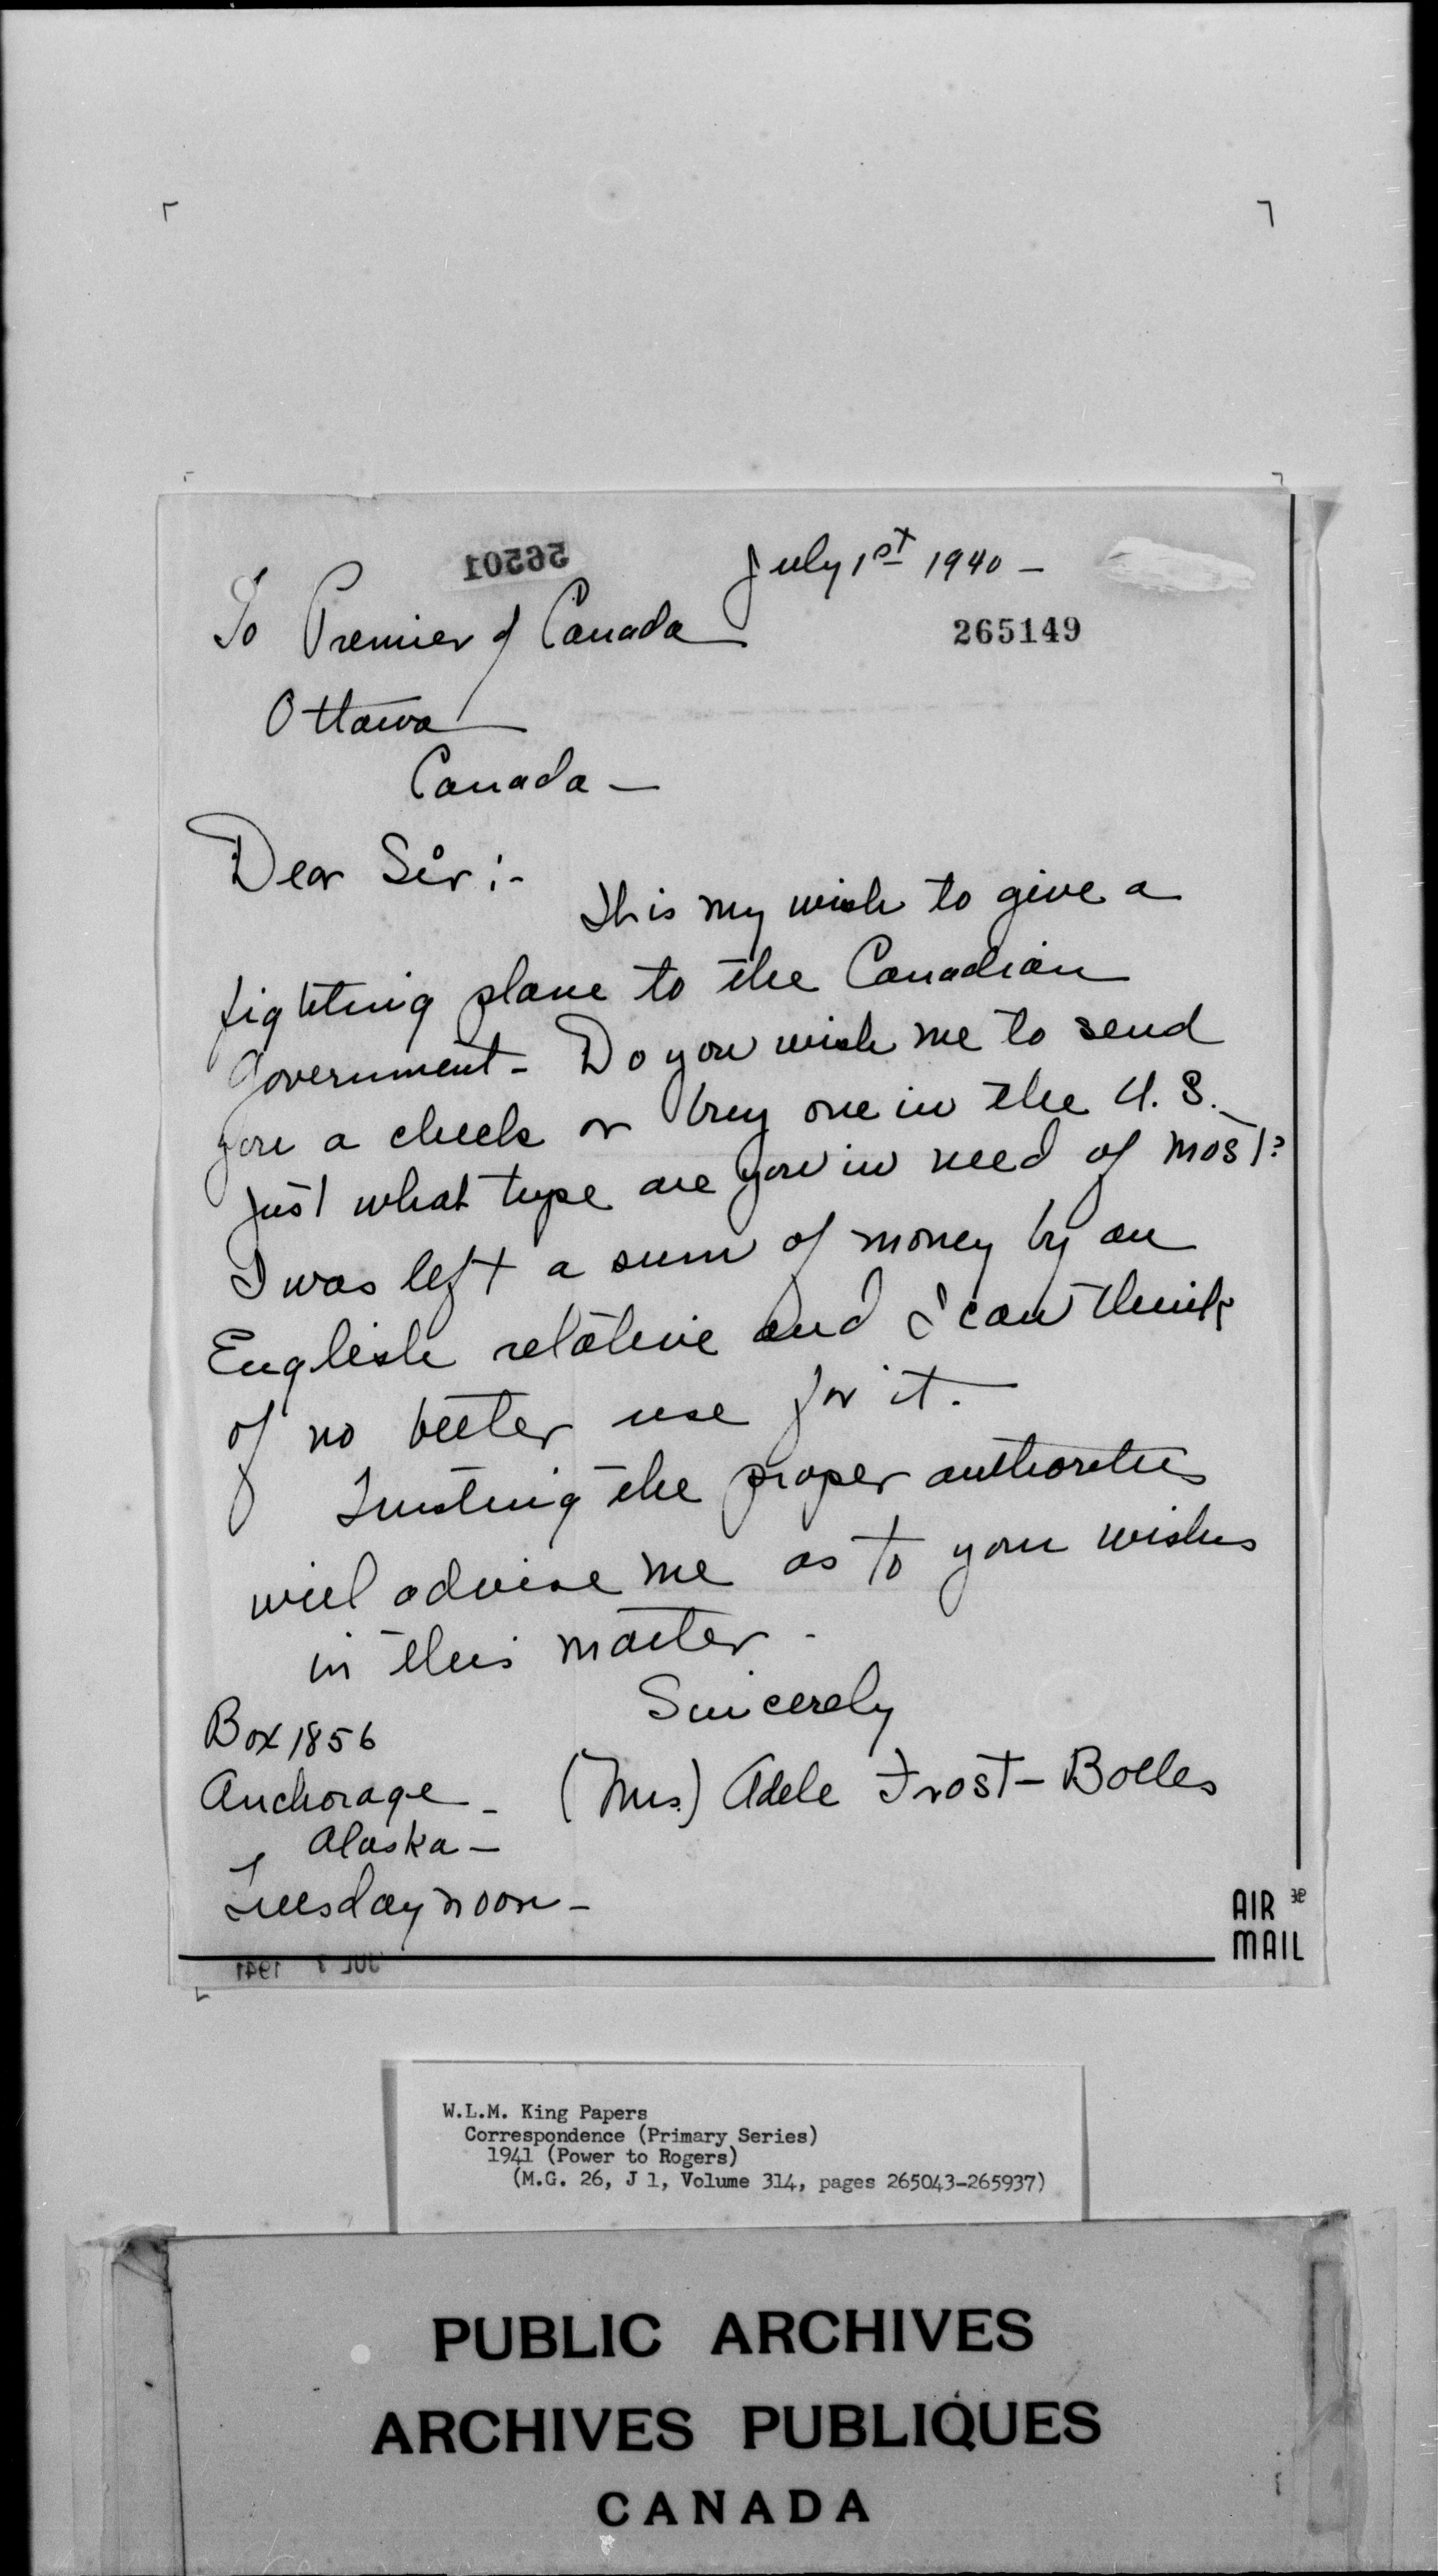 56201
July 1st 1940 —
To Premier of Canada
265149
Ottawa
Canada —
Dear Sir :-
It is my wish to give a
fighting plane to the Canadian
Government - Do you wish me to send
you a check or buy one in the U.S.
Just what type are you in need of most?
I was left a sum of money by an
English relative and I can think
of no better use for it.
Trusting the proper authorities
will advise me as to your wishes
in this matter -
Sincerely
Box 1856
(Mrs.) Adele Frost - Bolles
Anchorage -
Alaska —
Tuesday noon -
AIR
MAIL
JUL 7 1941
W.L.M. King Papers
Correspondence (Primary Series)
1941 (Power to Rogers)
(M.G. 26, J 1, Volume 314, pages 265043-265937)
PUBLIC ARCHIVES
ARCHIVES PUBLIQUES
CANADA